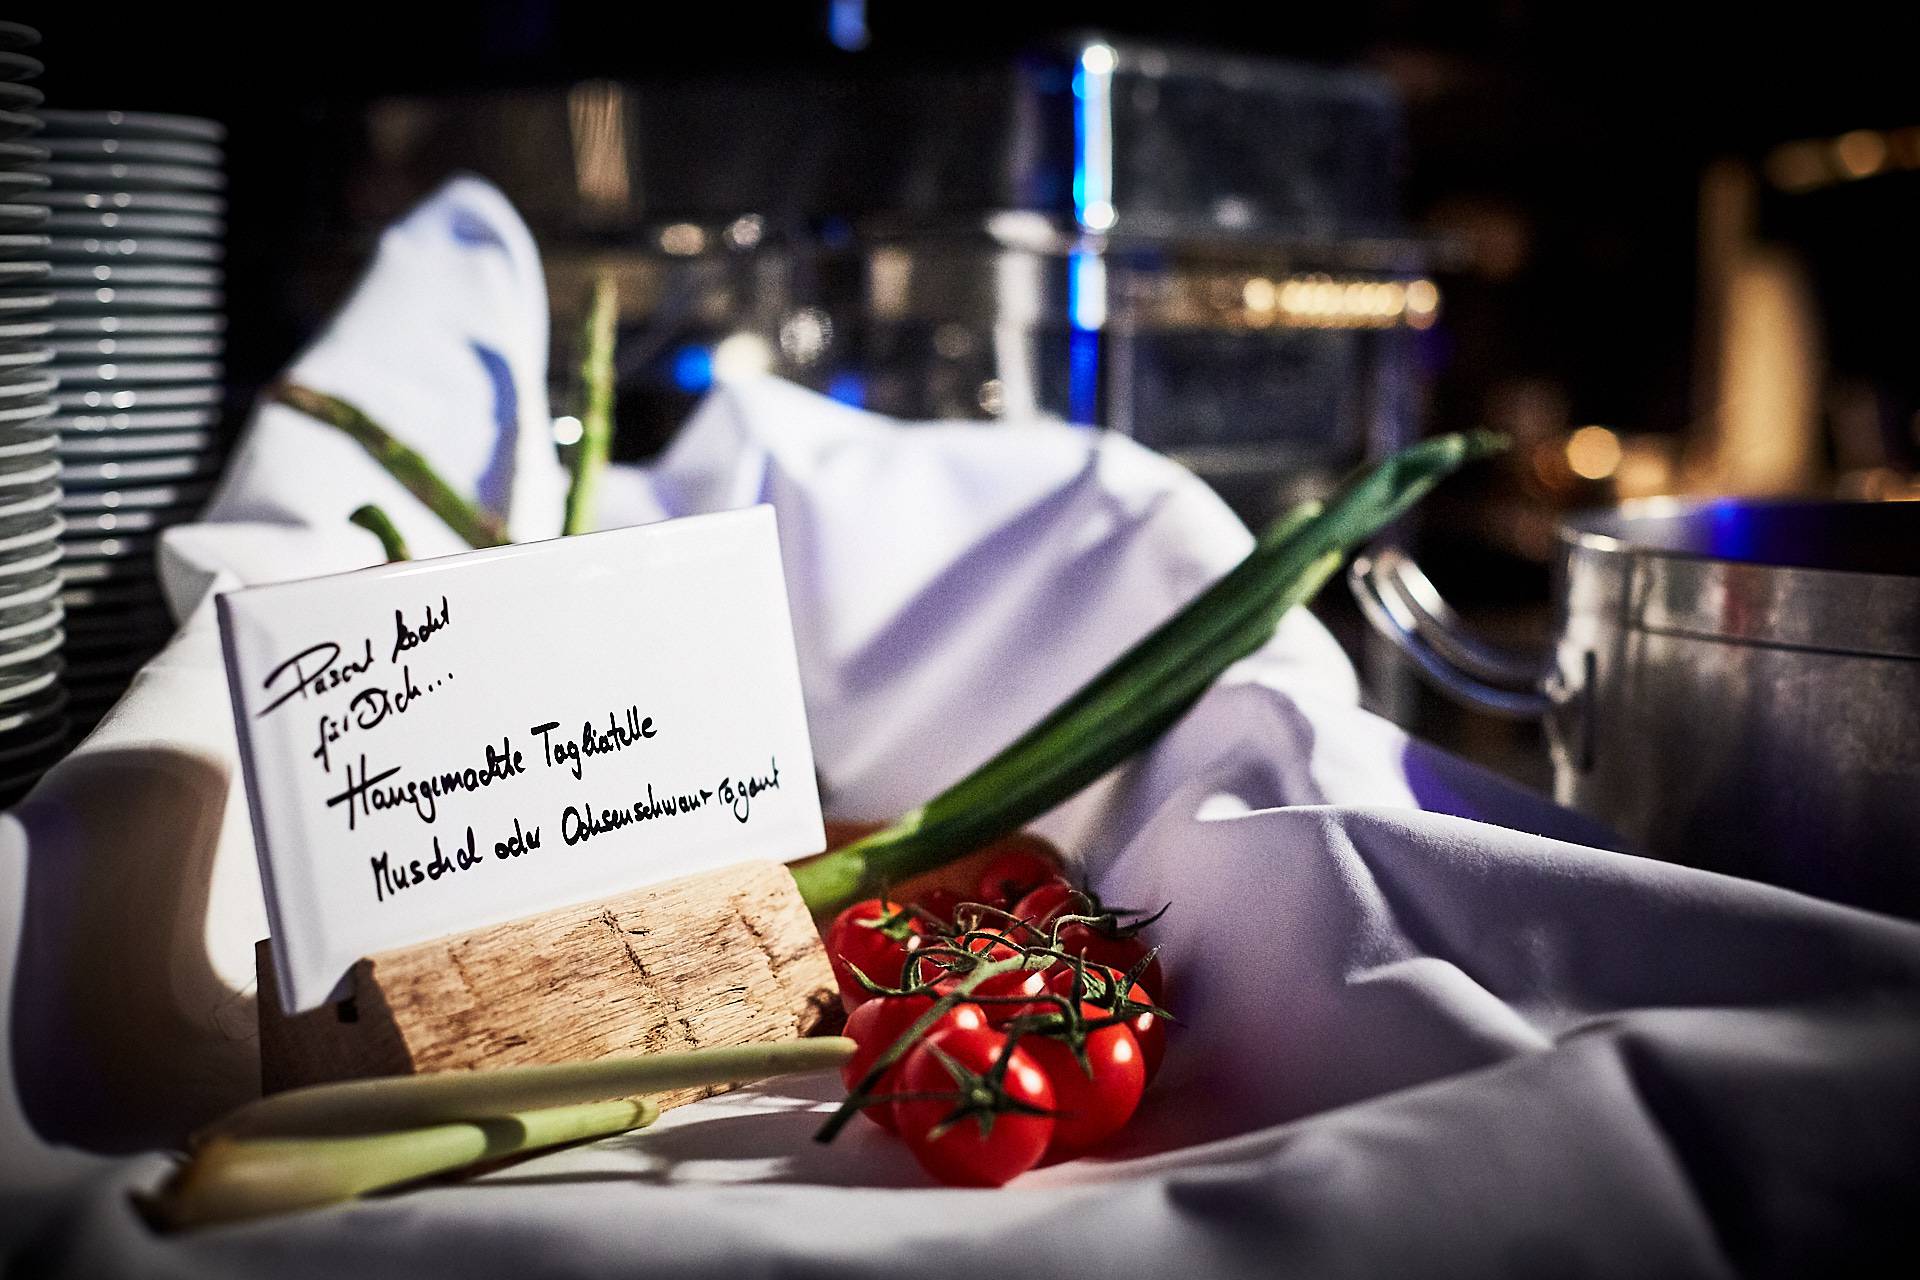 Pascal kocht
für Dich...
Hausgemachte Tagliatelle
Muschel oder Ochsenschwanzragout